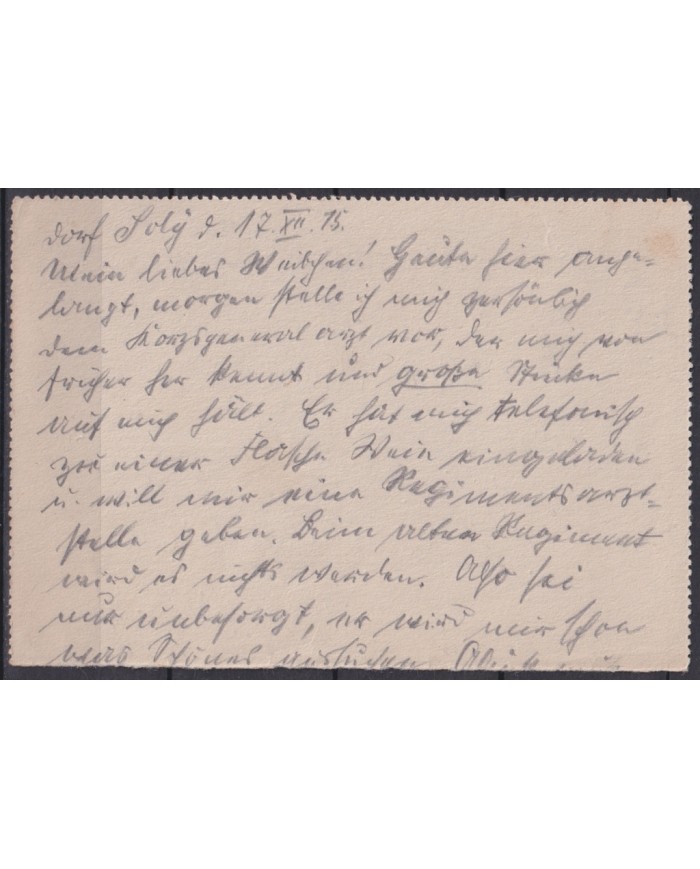 Dorf Soly d. 17. XII. 15.
Mein liebes Weibchen! Heute hier ange-
langt, morgen stelle ich mich persönlich
dem Korpsgeneralarzt vor, der mich von
früher her kennt und große Stücke
auf mich hält. Er hat mich telefonisch
zu einer Flasche Wein eingeladen
u. will mir eine Regimentsarzt-
stelle geben. Beim alten Regiment
wird es nichts werden. Also sei
nur unbesorgt, er wird mir schon
was Schönes aussuchen.